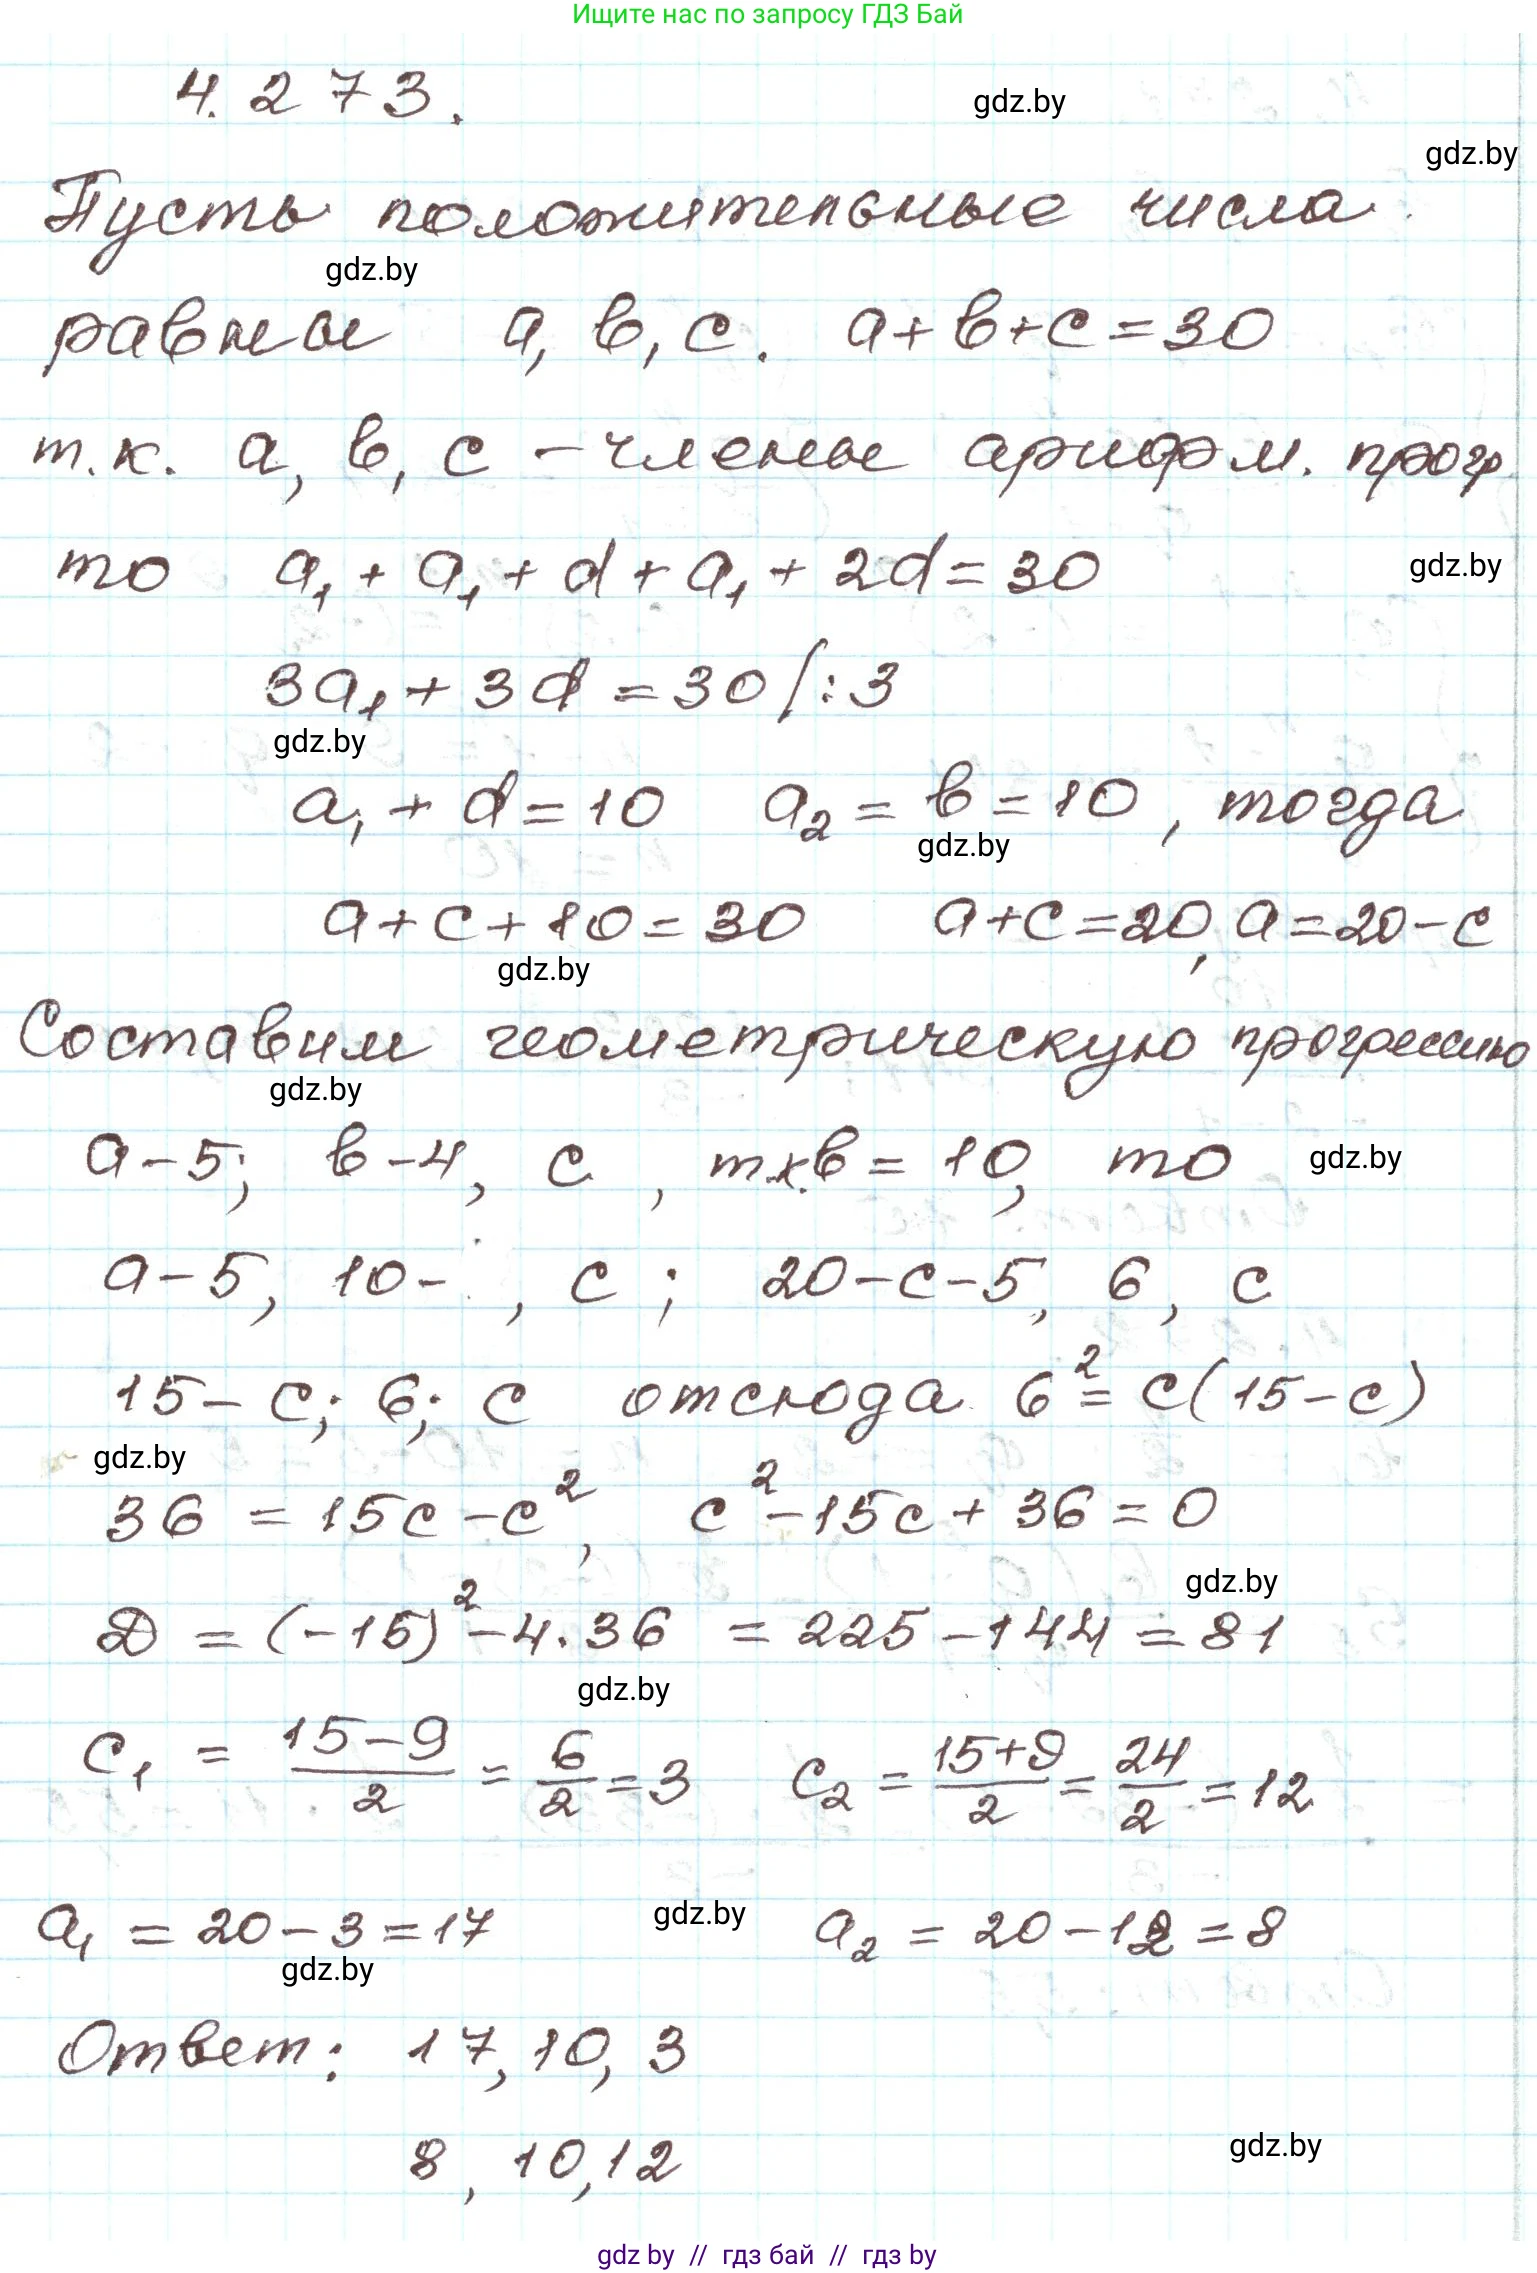 Ищите нас по запросу ГДЗ Бай
4.273.
gdz.by
gdz.by
Пусть положительные числа
gdz.by
равны a, b, c. a+b+c=30
т.к. a, b, c – члены арифм. прогр
то a₁ + a₁ + d + a₁ + 2d = 30
gdz.by
3a₁ + 3d = 30 /:3
gdz.by
a₁ + d = 10 a₂ = b = 10, тогда
gdz.by
a+c+10=30 a+c=20, a=20-c
gdz.by
Составим геометрическую прогрессию
gdz.by
a-5; b-4, c, т.к. b = 10, то
gdz.by
a-5, 10- , c; 20-c-5, 6, c
15-c; 6; c отсюда 6²=c(15-c)
gdz.by
36 = 15c-c², c²-15c+36=0
gdz.by
D = (-15)²-4·36 = 225-144=81
gdz.by
c₁ = (15-9)/2 = 6/2 = 3 c₂ = (15+9)/2 = 24/2 = 12
a₁ = 20-3=17 gdz.by a₂ = 20-12=8
gdz.by
Ответ: 17, 10, 3
8, 10, 12
gdz.by
gdz by // гдз бай // гдз by